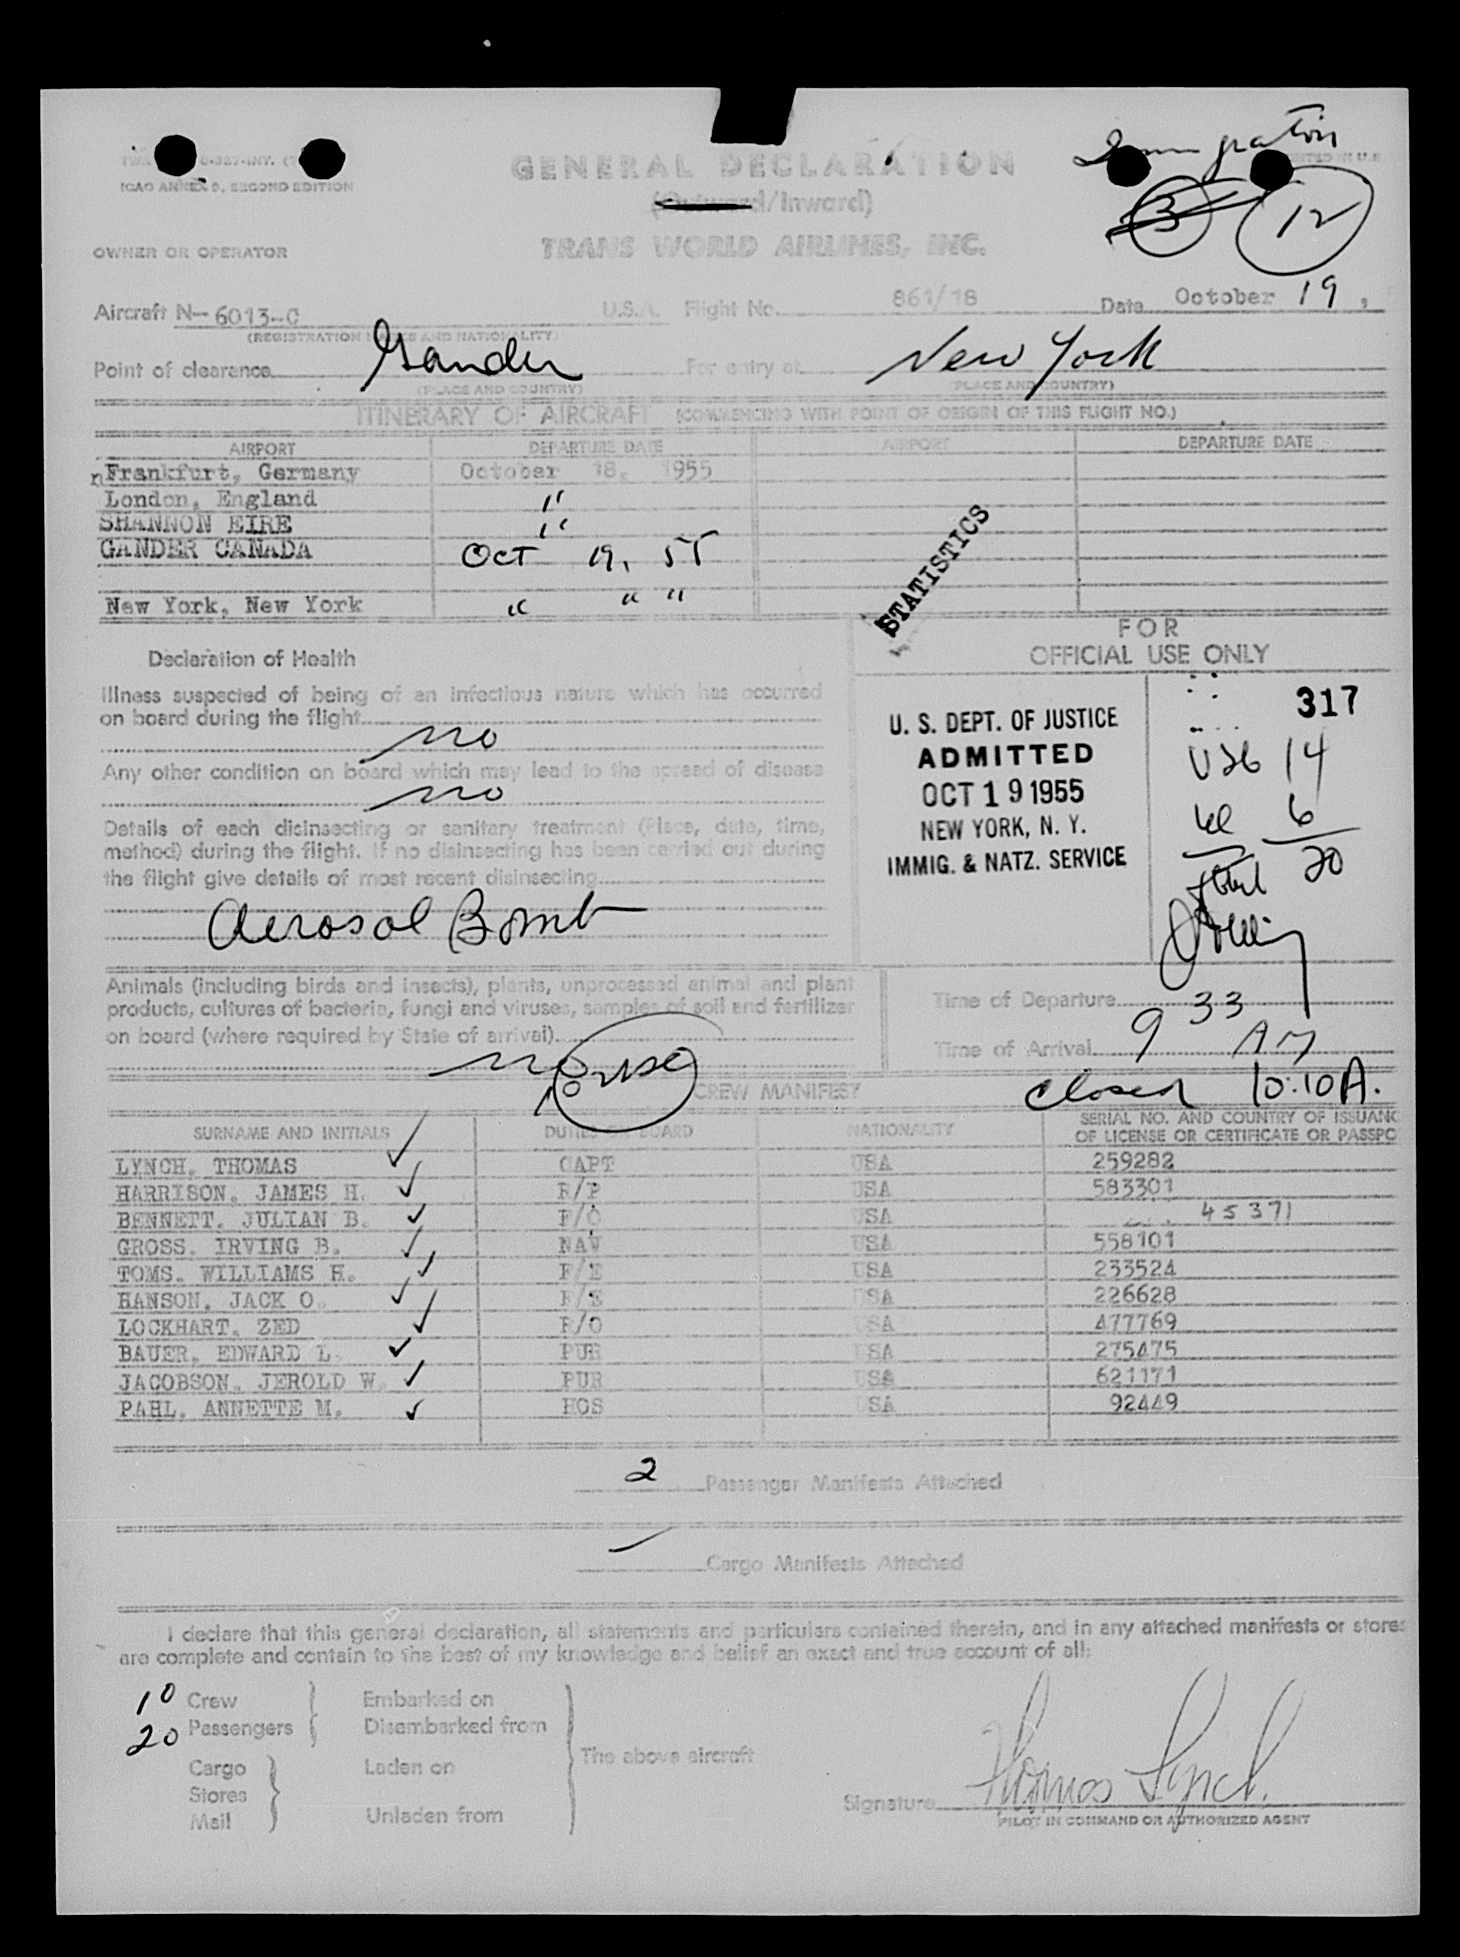 Immigration
ICAO ANNEX 9, SECOND EDITION
GENERAL DECLARATION
(Outward/Inward)
3 12
OWNER OR OPERATOR TRANS WORLD AIRLINES, INC.
Aircraft N-6013-C U.S.A. Flight No. 861/18 Date October 19,
(REGISTRATION MARKS AND NATIONALITY)
Point of clearance Gander For entry at New York
(PLACE AND COUNTRY) (PLACE AND COUNTRY)
ITINERARY OF AIRCRAFT (COMMENCING WITH POINT OF ORIGIN OF THIS FLIGHT NO.)
AIRPORT DEPARTURE DATE AIRPORT DEPARTURE DATE
Frankfurt, Germany October 18, 1955
London, England "
SHANNON EIRE "
GANDER CANADA OCT 19, 55
New York, New York " " "
STATISTICS
FOR
OFFICIAL USE ONLY
Declaration of Health
Illness suspected of being of an infectious nature which has occurred
on board during the flight
no
Any other condition on board which may lead to the spread of disease
no
Details of each disinsecting or sanitary treatment (Place, date, time,
method) during the flight. If no disinsecting has been carried out during
the flight give details of most recent disinsecting
Aerosol Bomb
U. S. DEPT. OF JUSTICE
ADMITTED
OCT 19 1955
NEW YORK, N. Y.
IMMIG. & NATZ. SERVICE
317
USC 14
6
Total 20
Animals (including birds and insects), plants, unprocessed animal and plant
products, cultures of bacteria, fungi and viruses, samples of soil and fertilizer
on board (where required by State of arrival)
none
Time of Departure
Time of Arrival 9 33 AM
closed 10:10 A.
10 CREW MANIFEST
SURNAME AND INITIALS DUTIES ON BOARD NATIONALITY SERIAL NO. AND COUNTRY OF ISSUANC
OF LICENSE OR CERTIFICATE OR PASSPO
LYNCH, THOMAS CAPT USA 259282
HARRISON, JAMES H. R/P USA 583301
BENNETT, JULIAN B. F/O USA 45371
GROSS, IRVING B. NAV USA 558101
TOMS, WILLIAMS H. F/E USA 233524
HANSON, JACK O. F/E USA 226628
LOCKHART, ZED R/O USA 477769
BAUER, EDWARD L. PUR USA 275475
JACOBSON, JEROLD W. PUR USA 621171
PAHL, ANNETTE M. HOS USA 92449
2 Passenger Manifests Attached
Cargo Manifests Attached
I declare that this general declaration, all statements and particulars contained therein, and in any attached manifests or stores
are complete and contain to the best of my knowledge and belief an exact and true account of all:
10 Crew Embarked on
20 Passengers Disembarked from
The above aircraft
Cargo Laden on
Stores
Mail Unladen from
Signature Thomas Lynch
PILOT IN COMMAND OR AUTHORIZED AGENT